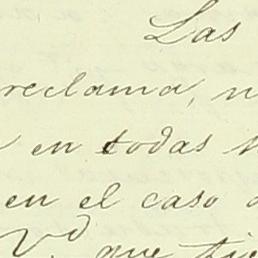 Las
reclama, n
en todas
en el caso
Vd. que